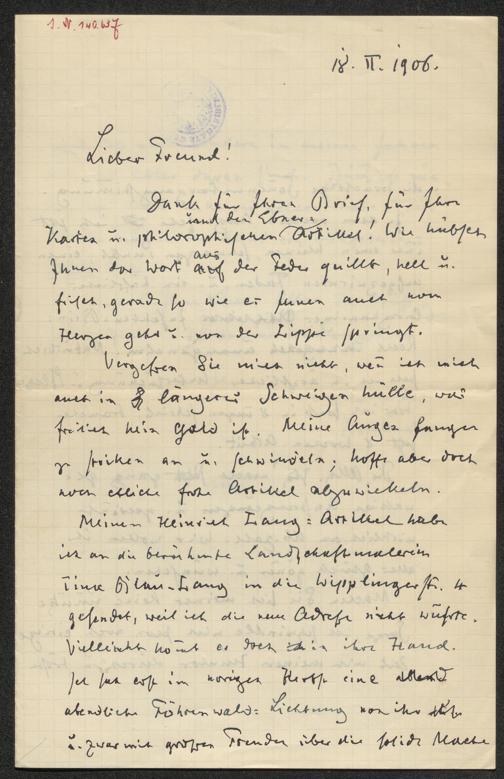 I. N. 140.497
18. II. 1906.
Lieber Freund!
Dank für Ihren Brief, für Ihre
und den Ebner=
Karten u. philosophischen Artikel! Wie hübsch
Ihnen das Wort aus der Feder quillt, hell u.
frisch, gerade so wie es Ihnen auch vom
Herzen geht u. von der Lippe springt.
Vergessen Sie mich nicht, wen̄ ich mich
auch in längeres Schweigen hülle, was
freilich kein Gold ist. Meine Augen fangen
z. sticken an u. schwindeln; hoffe aber doch
noch etliche frohe Artikel abzuwickeln.
Meinen Heinrich Lang=Artikel habe
ich an die berühmte Landschaftsmalerin
Tina Blau=Lang in die Wipplingerstr. 4
gesendet, weil ich die neue Adresse nicht wußte.
Vielleicht kom̄t er doch in ihre Hand.
Ich sah erst im vorigen Herbst eine
abendliche Föhrenwald=Lichtung von ihr
u. zwar mit großer Freude über die solide Mache